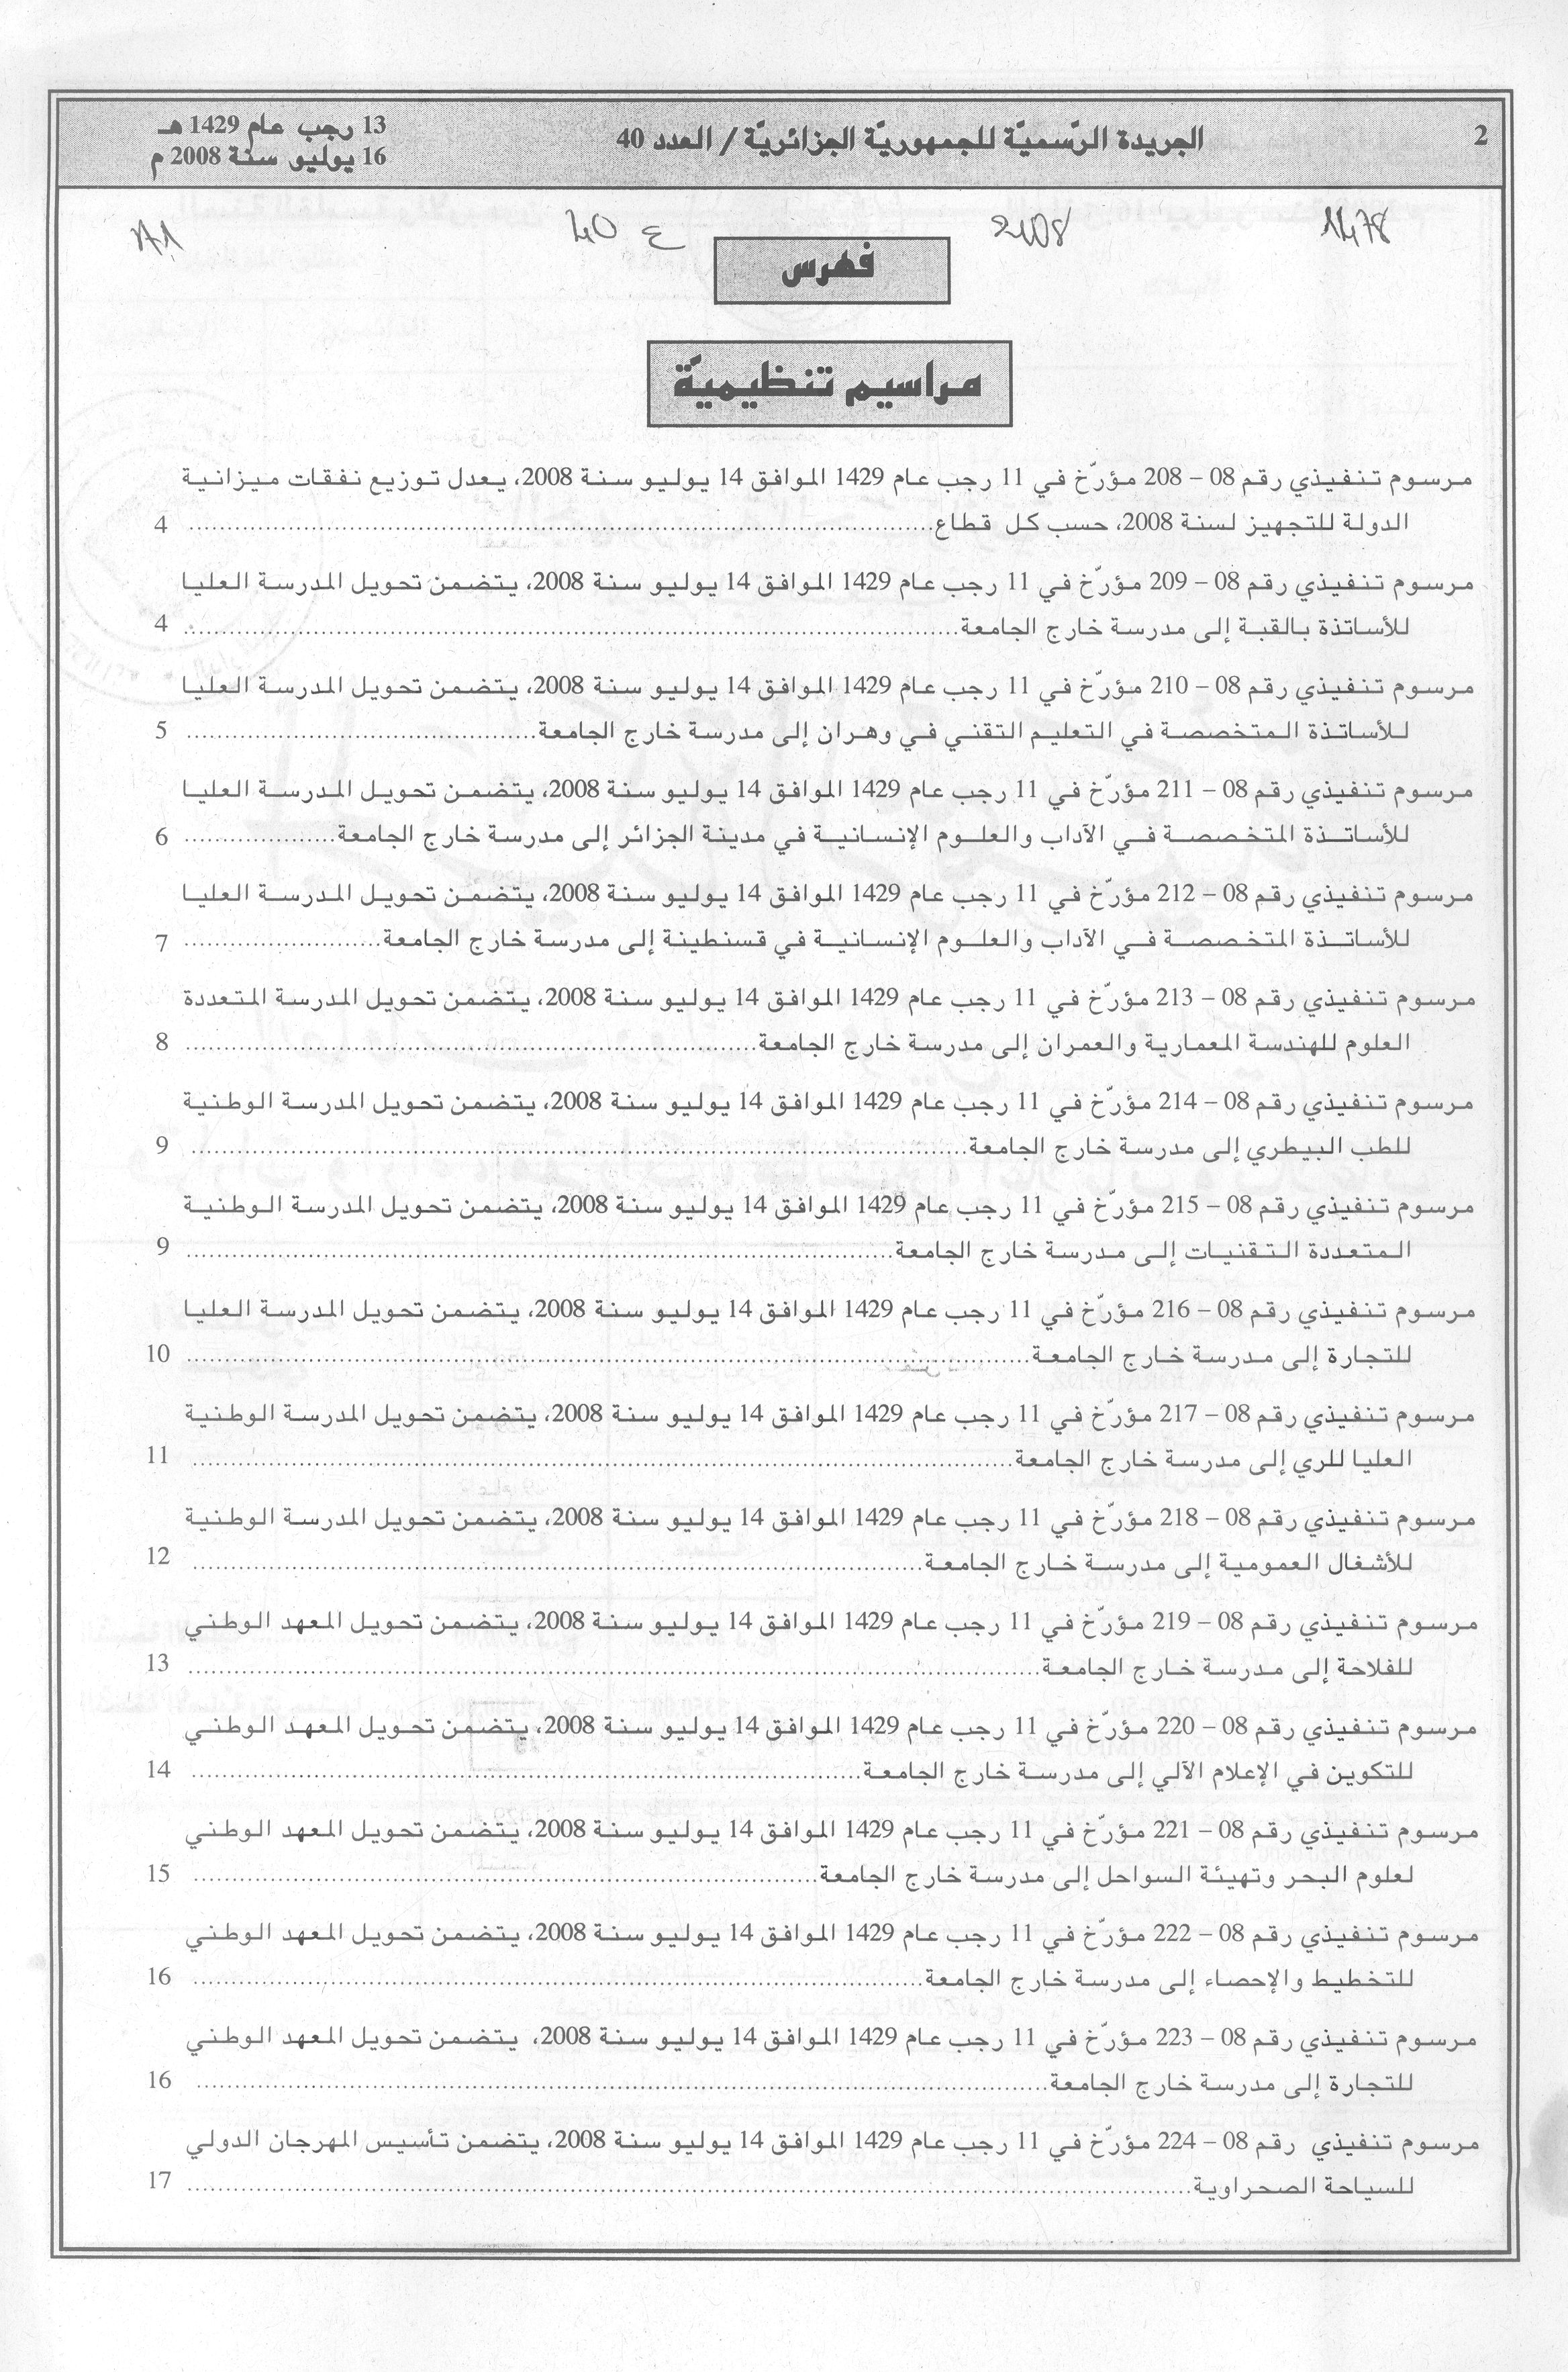 2
الجريدة الرّسميّة للجمهوريّة الجزائريّة / العدد 40
13 رجب عام 1429 هـ
16 يوليو سنة 2008 م
1478
2008
ع 40
فهرس
مراسيم تنظيميّة
مرسوم تنفيذي رقم 08 – 208 مؤرّخ في 11 رجب عام 1429 الموافق 14 يوليو سنة 2008، يعدل توزيع نفقات ميزانية
الدولة للتجهيز لسنة 2008، حسب كل قطاع.......... 4
مرسوم تنفيذي رقم 08 – 209 مؤرّخ في 11 رجب عام 1429 الموافق 14 يوليو سنة 2008، يتضمن تحويل المدرسة العليا
للأساتذة بالقبة إلى مدرسة خارج الجامعة.......... 4
مرسوم تنفيذي رقم 08 – 210 مؤرّخ في 11 رجب عام 1429 الموافق 14 يوليو سنة 2008، يتضمن تحويل المدرسة العليا
للأساتذة المتخصصة في التعليم التقني في وهران إلى مدرسة خارج الجامعة.......... 5
مرسوم تنفيذي رقم 08 – 211 مؤرّخ في 11 رجب عام 1429 الموافق 14 يوليو سنة 2008، يتضمن تحويل المدرسة العليا
للأساتذة المتخصصة في الآداب والعلوم الإنسانية في مدينة الجزائر إلى مدرسة خارج الجامعة.......... 6
مرسوم تنفيذي رقم 08 – 212 مؤرّخ في 11 رجب عام 1429 الموافق 14 يوليو سنة 2008، يتضمن تحويل المدرسة العليا
للأساتذة المتخصصة في الآداب والعلوم الإنسانية في قسنطينة إلى مدرسة خارج الجامعة.......... 7
مرسوم تنفيذي رقم 08 – 213 مؤرّخ في 11 رجب عام 1429 الموافق 14 يوليو سنة 2008، يتضمن تحويل المدرسة المتعددة
العلوم للهندسة المعمارية والعمران إلى مدرسة خارج الجامعة.......... 8
مرسوم تنفيذي رقم 08 – 214 مؤرّخ في 11 رجب عام 1429 الموافق 14 يوليو سنة 2008، يتضمن تحويل المدرسة الوطنية
للطب البيطري إلى مدرسة خارج الجامعة.......... 9
مرسوم تنفيذي رقم 08 – 215 مؤرّخ في 11 رجب عام 1429 الموافق 14 يوليو سنة 2008، يتضمن تحويل المدرسة الوطنية
المتعددة التقنيات إلى مدرسة خارج الجامعة.......... 9
مرسوم تنفيذي رقم 08 – 216 مؤرّخ في 11 رجب عام 1429 الموافق 14 يوليو سنة 2008، يتضمن تحويل المدرسة العليا
للتجارة إلى مدرسة خارج الجامعة.......... 10
مرسوم تنفيذي رقم 08 – 217 مؤرّخ في 11 رجب عام 1429 الموافق 14 يوليو سنة 2008، يتضمن تحويل المدرسة الوطنية
العليا للري إلى مدرسة خارج الجامعة.......... 11
مرسوم تنفيذي رقم 08 – 218 مؤرّخ في 11 رجب عام 1429 الموافق 14 يوليو سنة 2008، يتضمن تحويل المدرسة الوطنية
للأشغال العمومية إلى مدرسة خارج الجامعة.......... 12
مرسوم تنفيذي رقم 08 – 219 مؤرّخ في 11 رجب عام 1429 الموافق 14 يوليو سنة 2008، يتضمن تحويل المعهد الوطني
للفلاحة إلى مدرسة خارج الجامعة.......... 13
مرسوم تنفيذي رقم 08 – 220 مؤرّخ في 11 رجب عام 1429 الموافق 14 يوليو سنة 2008، يتضمن تحويل المعهد الوطني
للتكوين في الإعلام الآلي إلى مدرسة خارج الجامعة.......... 14
مرسوم تنفيذي رقم 08 – 221 مؤرّخ في 11 رجب عام 1429 الموافق 14 يوليو سنة 2008، يتضمن تحويل المعهد الوطني
لعلوم البحر وتهيئة السواحل إلى مدرسة خارج الجامعة.......... 15
مرسوم تنفيذي رقم 08 – 222 مؤرّخ في 11 رجب عام 1429 الموافق 14 يوليو سنة 2008، يتضمن تحويل المعهد الوطني
للتخطيط والإحصاء إلى مدرسة خارج الجامعة.......... 16
مرسوم تنفيذي رقم 08 – 223 مؤرّخ في 11 رجب عام 1429 الموافق 14 يوليو سنة 2008، يتضمن تحويل المعهد الوطني
للتجارة إلى مدرسة خارج الجامعة.......... 16
مرسوم تنفيذي رقم 08 – 224 مؤرّخ في 11 رجب عام 1429 الموافق 14 يوليو سنة 2008، يتضمن تأسيس المهرجان الدولي
للسياحة الصحراوية.......... 17